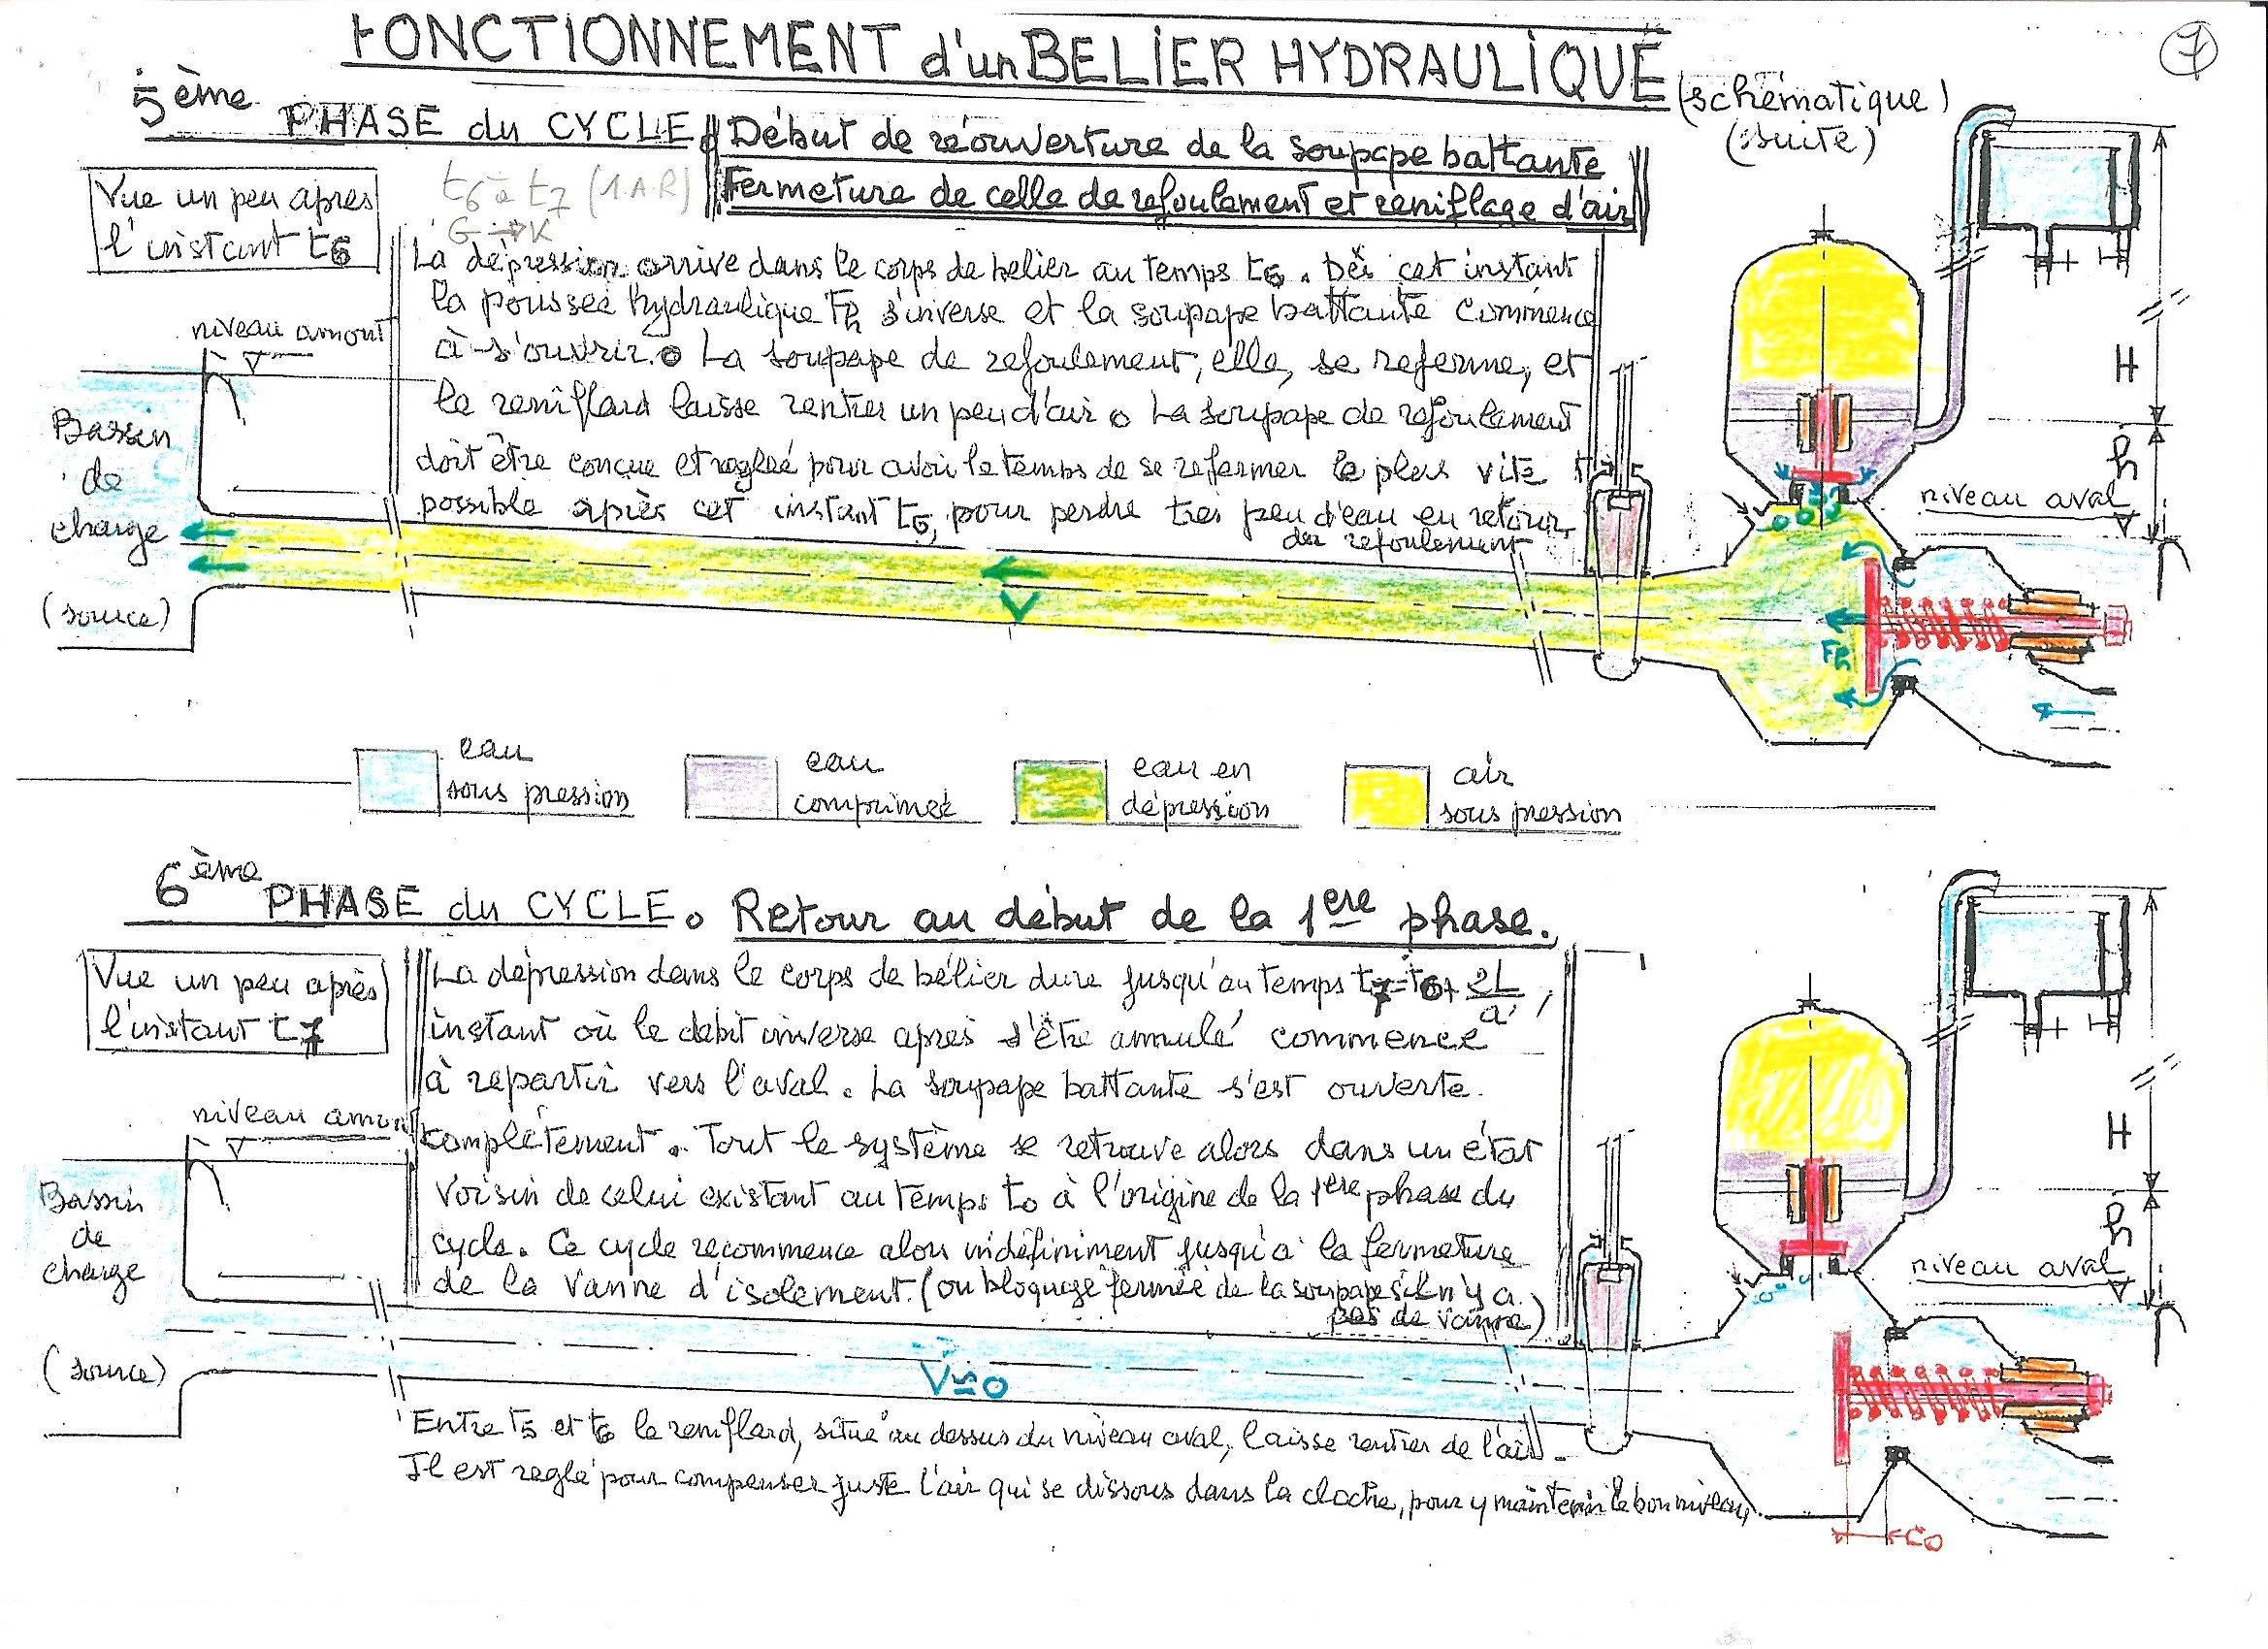 FONCTIONNEMENT d'un BELIER HYDRAULIQUE (schématique)
(suite)
7
5ème PHASE du CYCLE. Début de réouverture de la soupape battante
Fermeture de celle de refoulement et reniflage d'air
Vue un peu après
l'instant t6
t6 à t7 (1.A.R)
G → K
La dépression arrive dans le corps de belier au temps t6. Dès cet instant
la poussée hydraulique Fh s'inverse et la soupape battante commence
à s'ouvrir. La soupape de refoulement, elle, se referme, et
le reniflard laisse rentrer un peu d'air. La soupape de refoulement
doit être concue et reglée pour avoir le temps de se refermer le plus vite
possible après cet instant t6, pour perdre très peu d'eau en retour
du refoulement
niveau amont
Bassin
de
charge
(source)
V
Fh
H
h
niveau aval
eau
sous pression
eau
comprimée
eau en
dépression
air
sous pression
6ème PHASE du CYCLE. Retour au début de la 1ere phase.
Vue un peu après
l'instant t7
La dépression dans le corps de bélier dure jusqu'au temps t7 = t6 + 2L/a,
instant où le debit inverse après s'être annulé commence
à repartir vers l'aval. La soupape battante s'est ouverte
complètement. Tout le système se retrouve alors dans un état
voisin de celui existant au temps t0 à l'origine de la 1ere phase du
cycle. Ce cycle recommence alors indéfiniment jusqu'à la fermeture
de la vanne d'isolement. (ou bloquage fermée de la soupape s'il n'y a
pas de vanne)
niveau amont
Bassin
de
charge
(source)
H
h
niveau aval
C0
Entre t5 et t6 le reniflard, situé au dessus du niveau aval, laisse rentrer de l'air.
Il est reglé pour compenser juste l'air qui se dissous dans la cloche, pour y maintenir le bon niveau